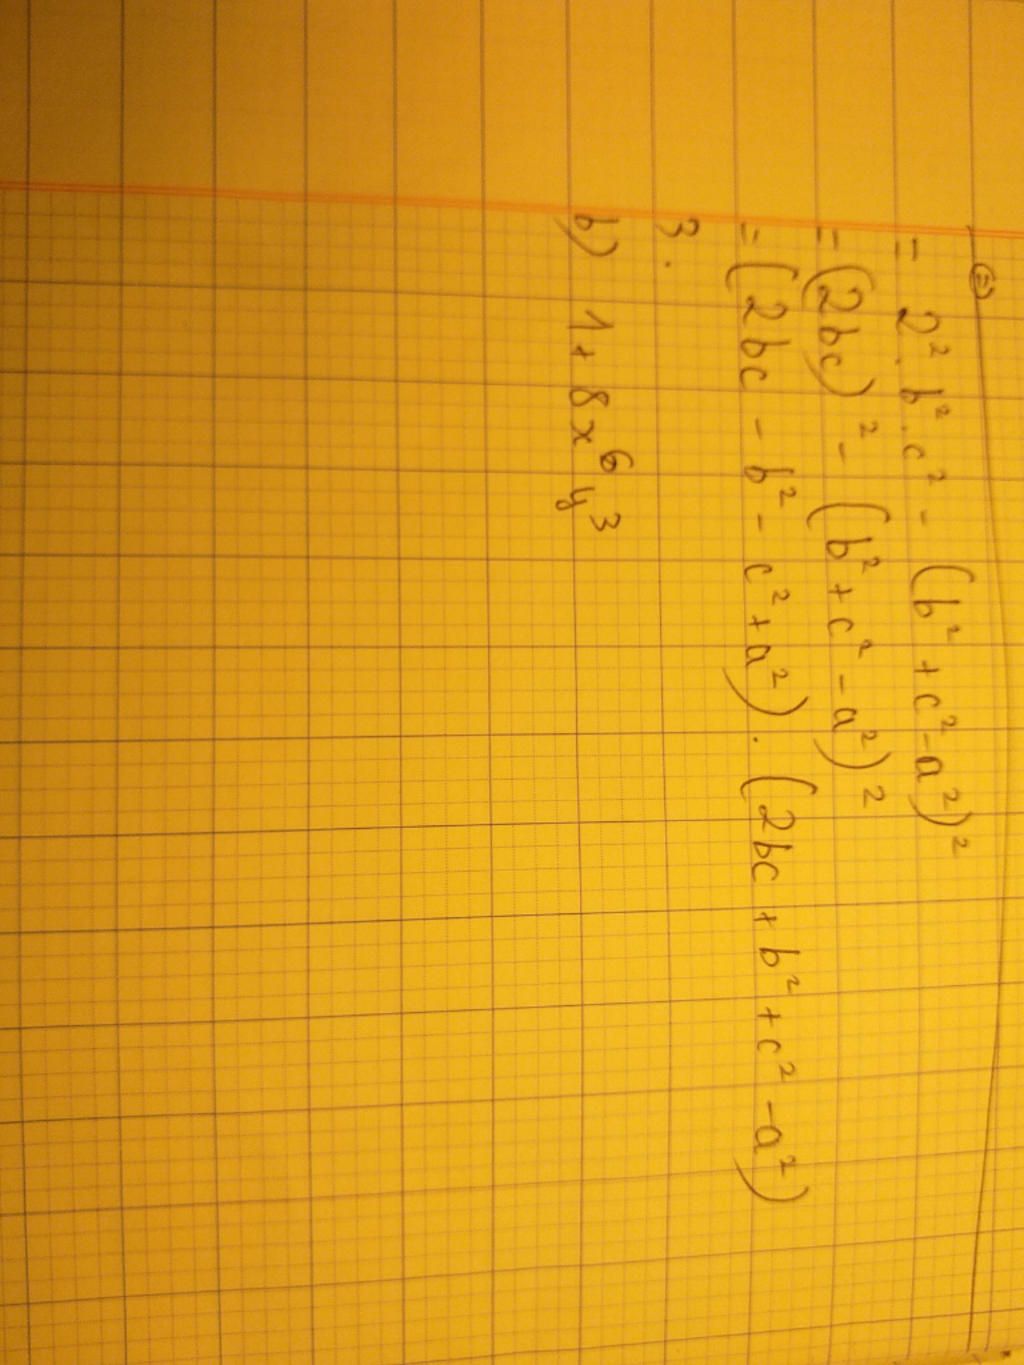 ⊜
= 2². b². c² - (b² + c² - a²)²
= (2bc)² - (b² + c² - a²)²
= (2bc - b² - c² + a²) . (2bc + b² + c² - a²)
3.
b) 1 + 8x⁶y³